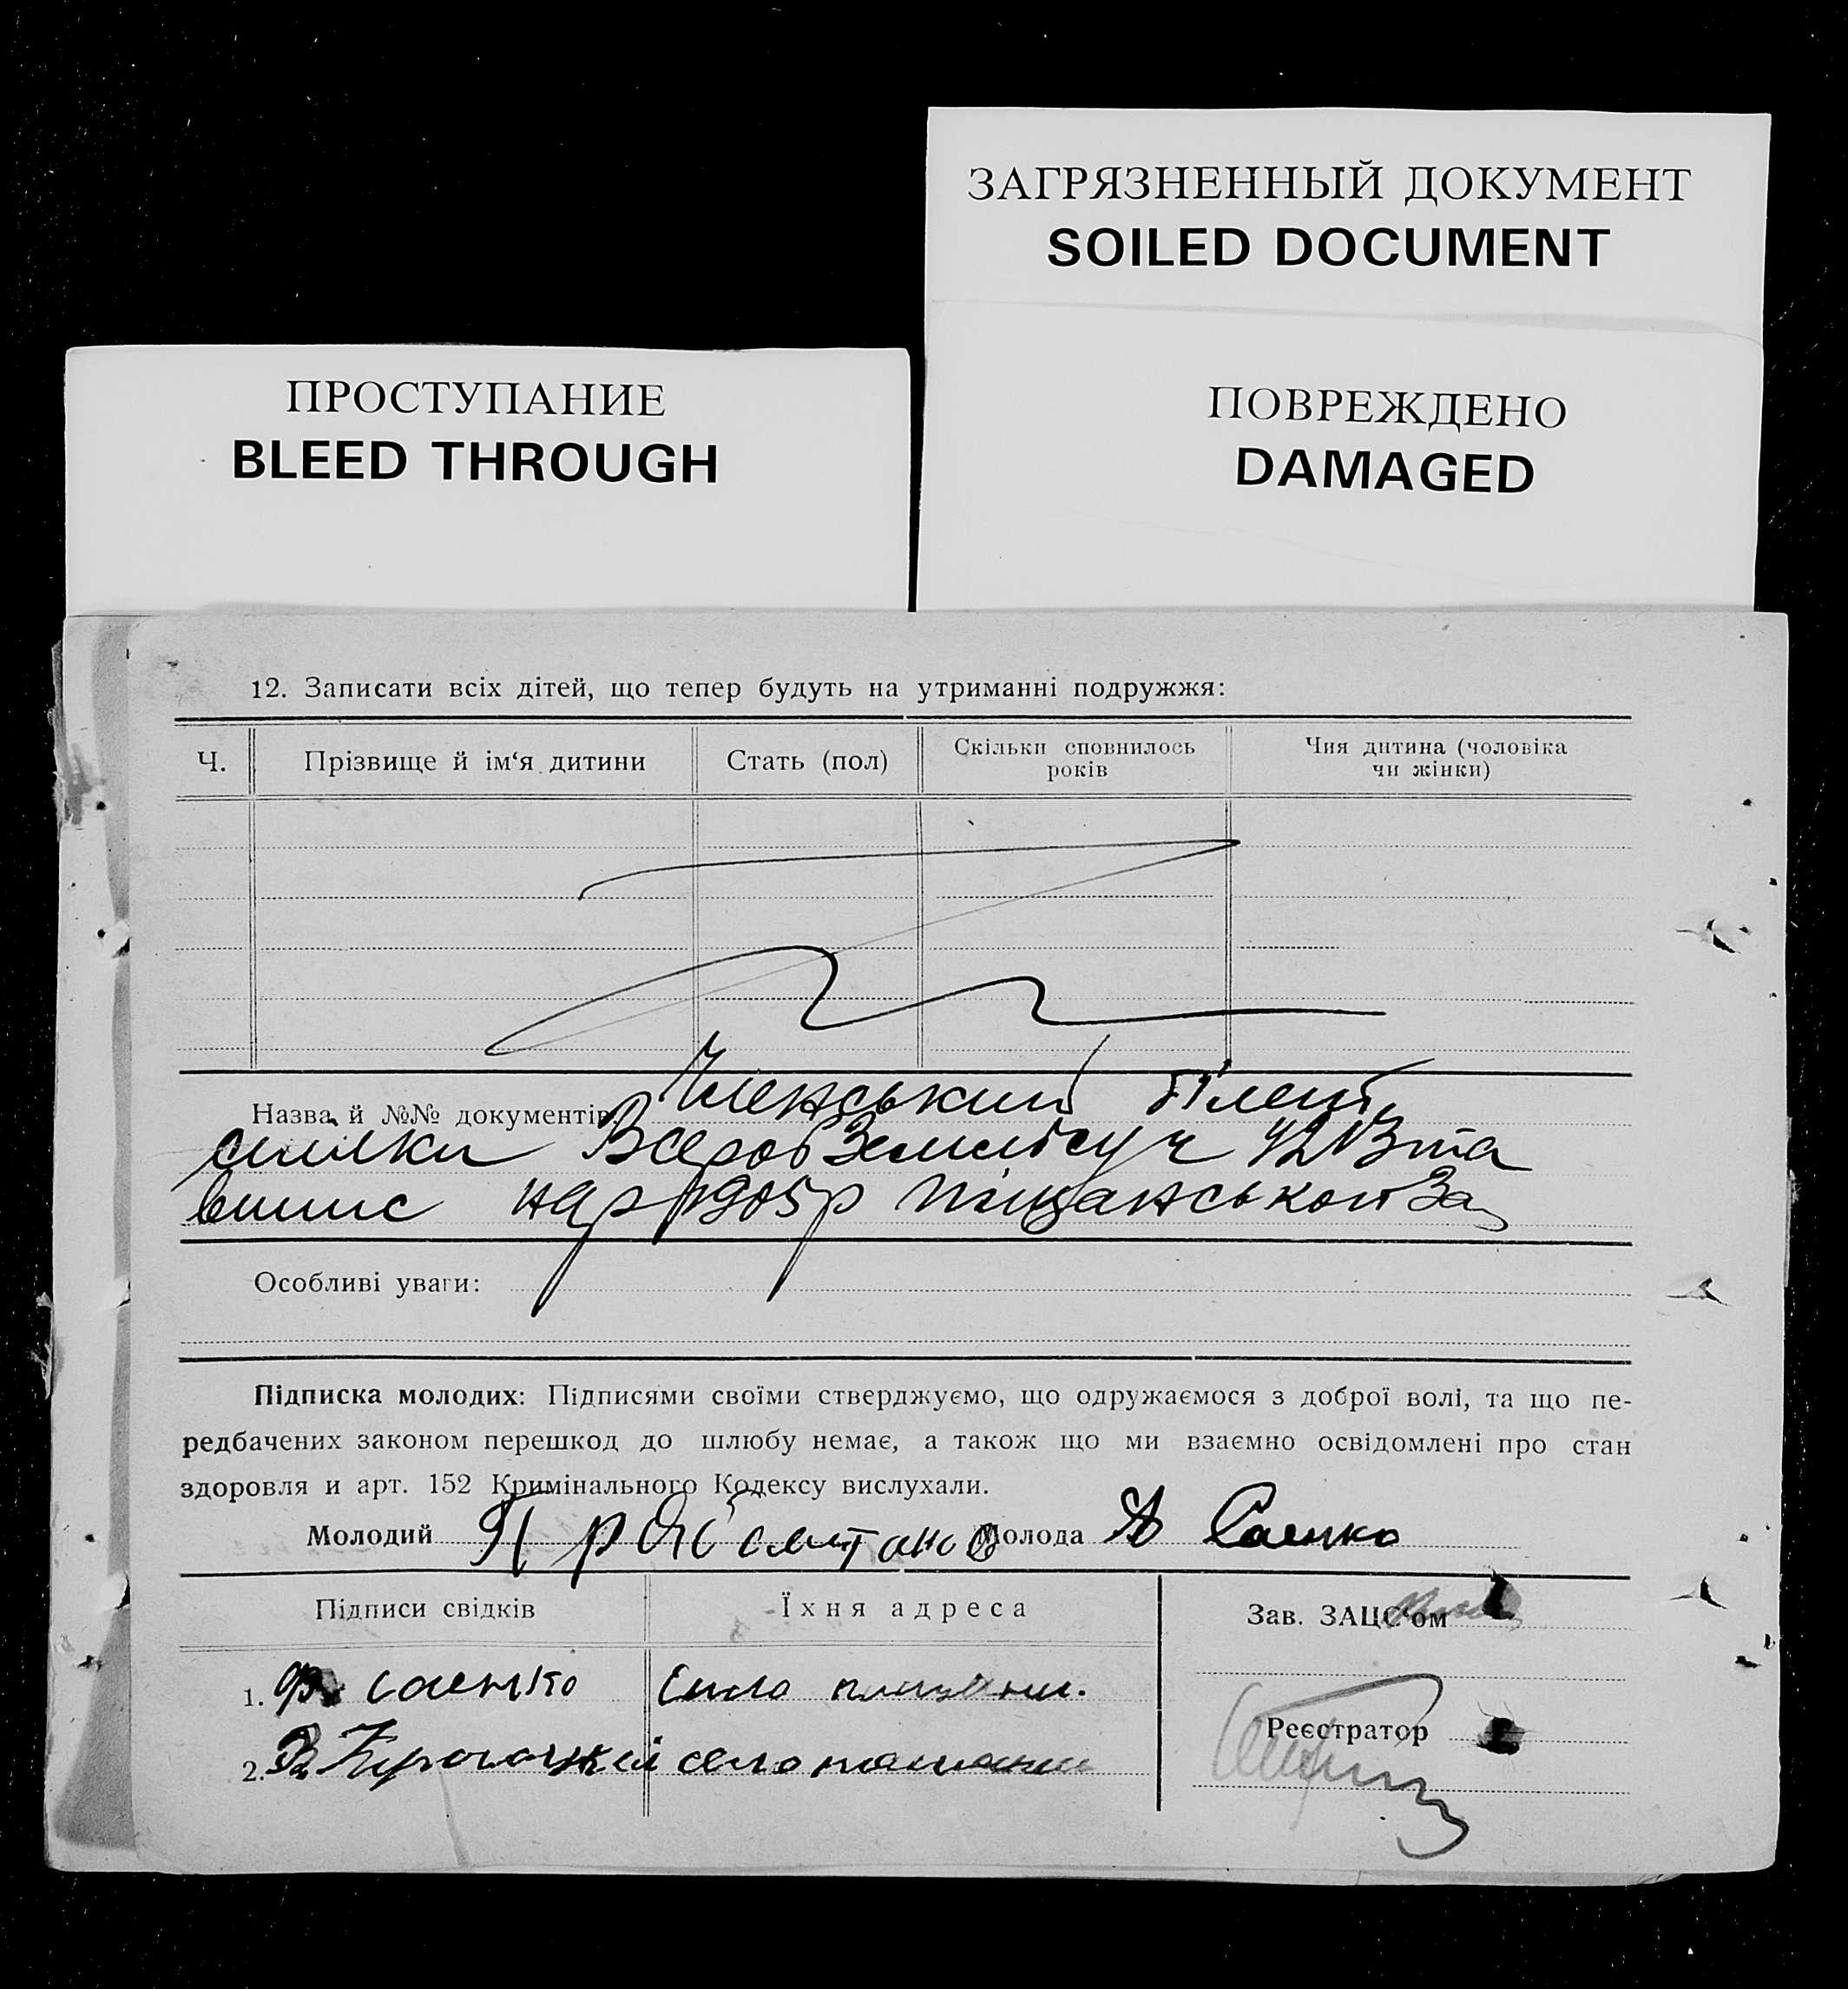 ЗАГРЯЗНЕННЫЙ ДОКУМЕНТ
SOILED DOCUMENT
ПРОСТУПАНИЕ
BLEED THROUGH
ПОВРЕЖДЕНО
DAMAGED
12. Записати всіх дітей, що тепер будуть на утриманні подружжя:
Ч. Прізвище й ім‘я дитини Стать (пол) Скільки сповнилось років Чия дитина (чоловіка чи жінки)
Назва й №№ документів: Членський білет
спілки 4213 та
випис Піщанського
Особливі уваги:
Підписка молодих: Підписями своїми стверджуємо, що одружаємося з доброї волі, та що пе-
редбачених законом перешкод до шлюбу немає, а також що ми взаємно освідомлені про стан
здоровля и арт. 152 Кримінального Кодексу вислухали.
Молодий Молода Саенко
Підписи свідків Їхня адреса Зав. ЗАЦС‘ом
1. Саенко Село пищани.
Реєстратор
2. село